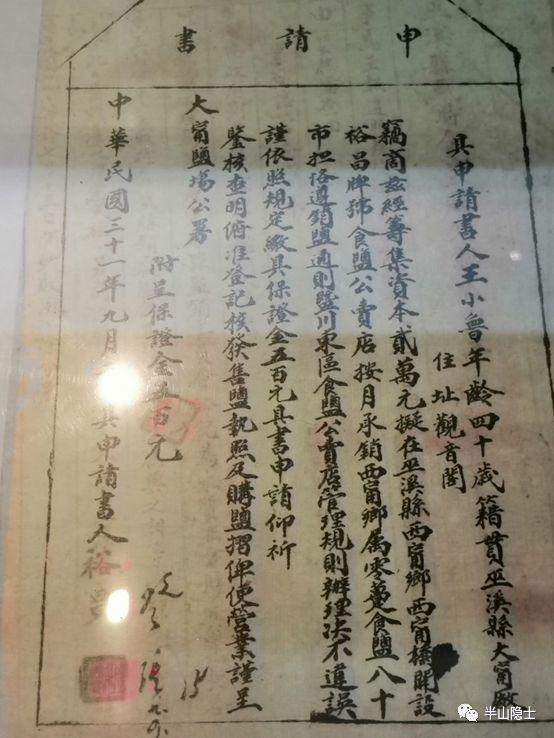 申請書
具申請書人王小魯年齡四十歲籍貫巫溪縣大甯廠
住址觀音閣
竊商茲經籌集資本貳萬元擬在巫溪縣西甯鄉西甯橋開設
裕昌牌號食鹽公賣店按月承銷西甯鄉属零躉食鹽八十
市担恪遵銷鹽通則暨川東區食鹽公賣店管理規則辦理決不違誤
謹依照規定繳具保證金五百元具書申請仰祈
鑒核查明俯准登記核發售鹽執照及購鹽摺俾便營業謹呈
大甯鹽場公署
附呈保證金五百元
中華民國三十一年九月 具申請書人裕昌
半山隐士